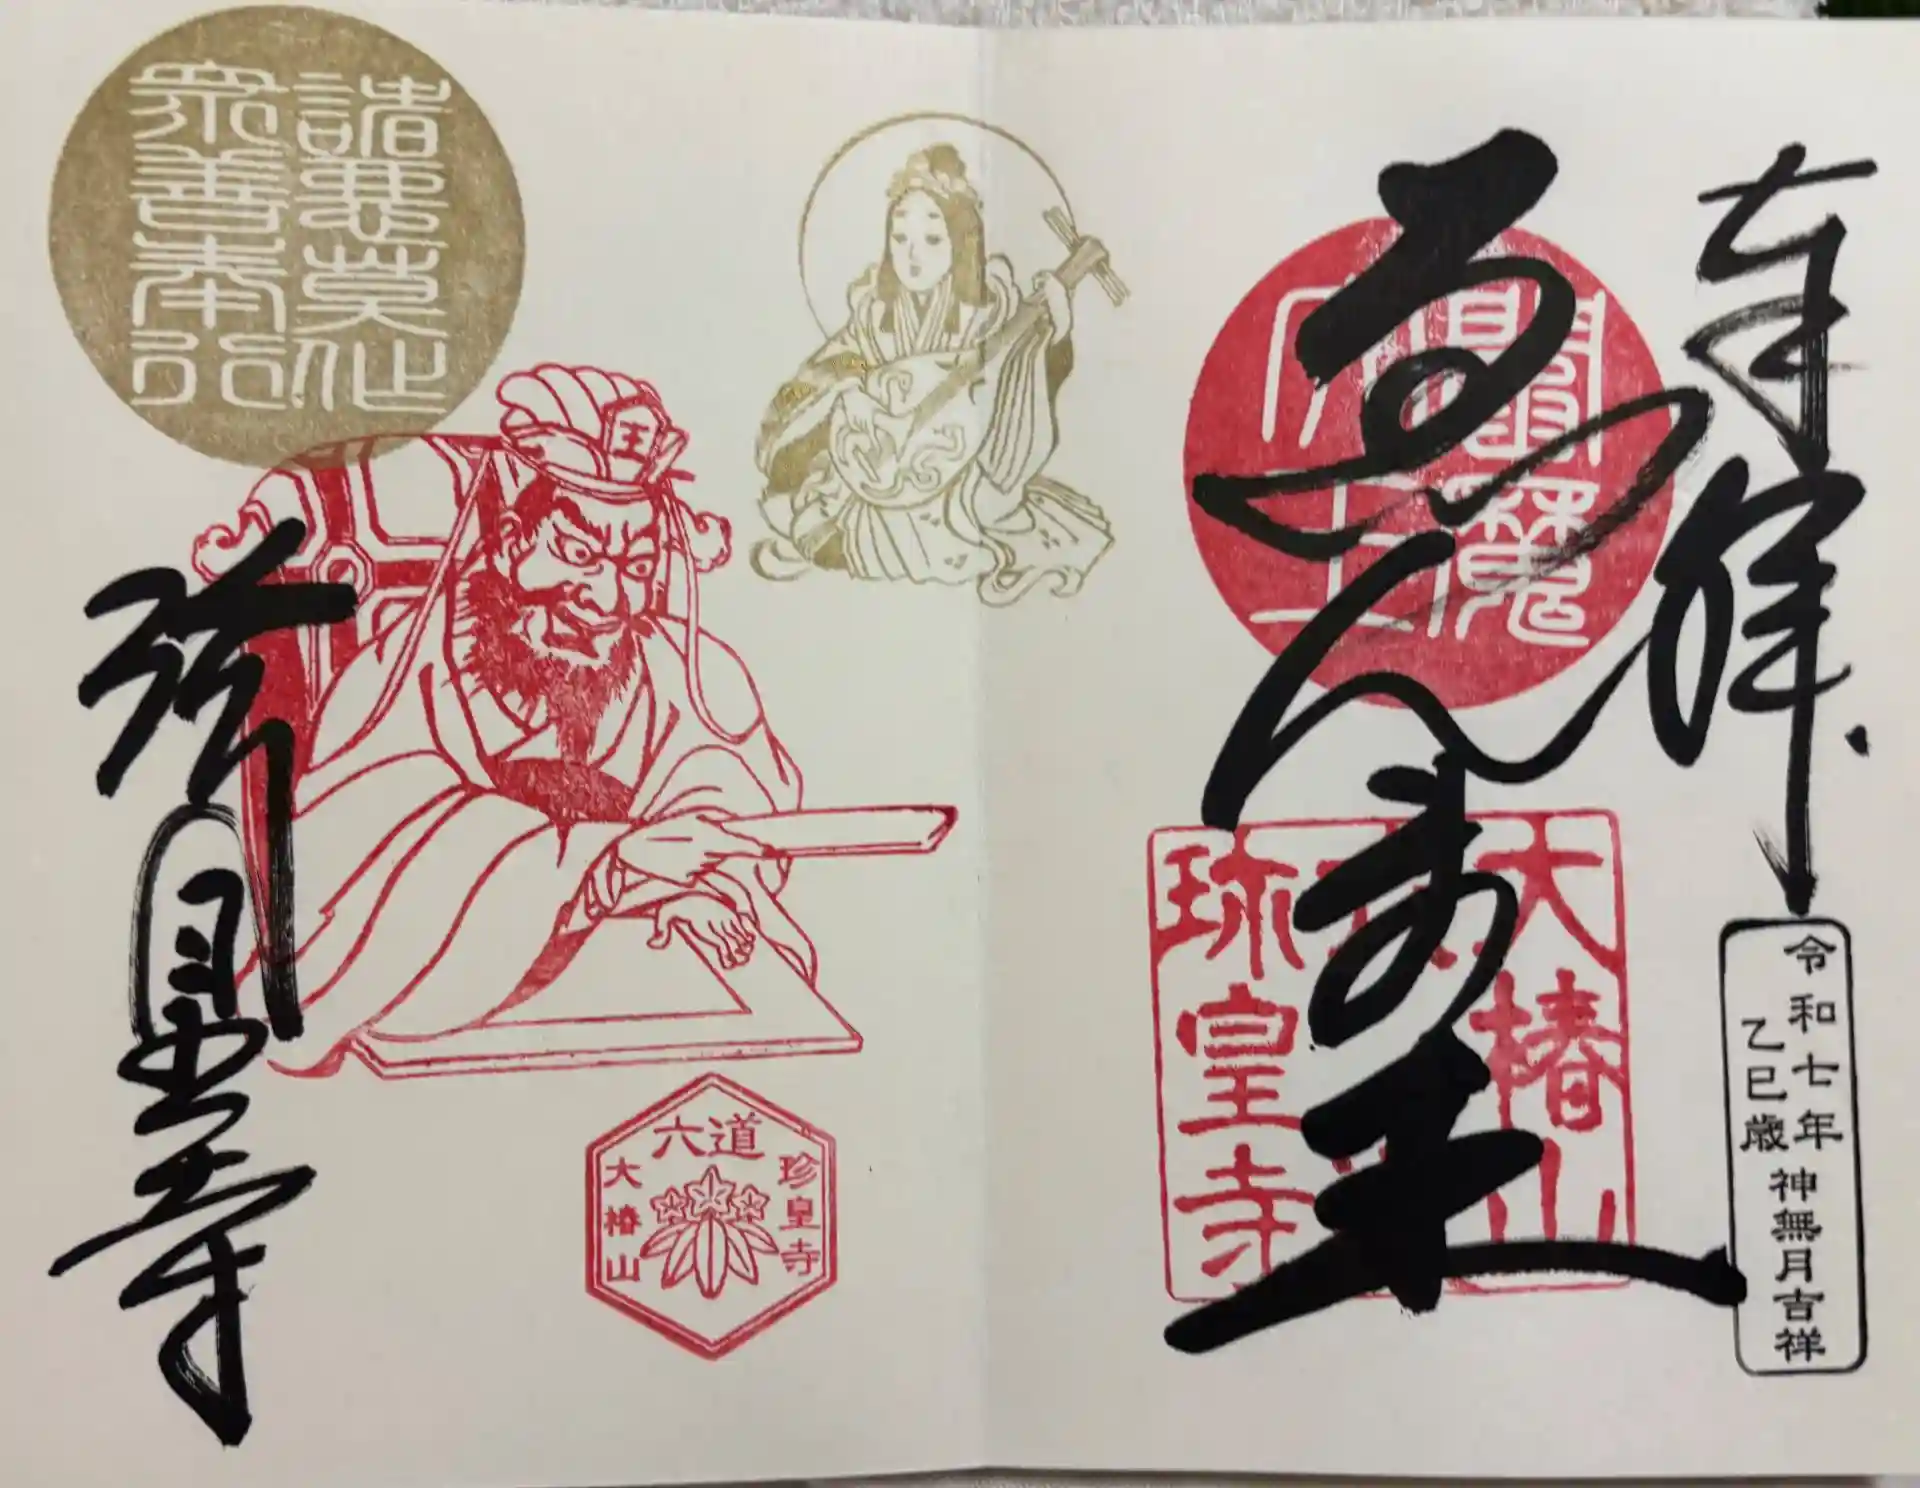 奉拝
令和七年
乙巳歳
神無月吉祥
閻魔
ゑんま王
大椿山
珍皇寺
諸悪莫作
衆善奉行
王
六道
珍皇寺
大椿山
珍皇寺